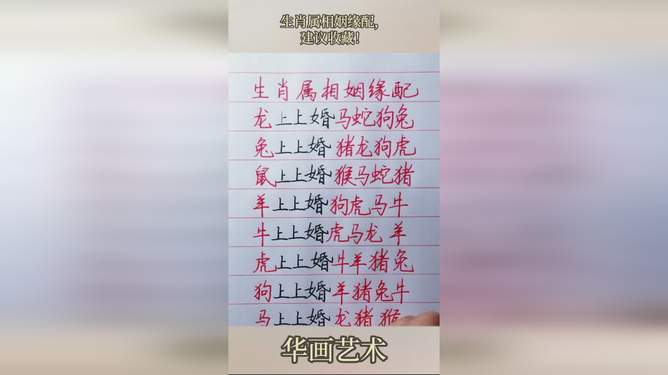 生肖属相姻缘配,
建议收藏!
生肖属相姻缘配
龙上上婚马蛇狗兔
兔上上婚 猪龙狗虎
鼠上上婚 猴马蛇猪
羊上上婚 狗虎马牛
牛上上婚 虎马龙 羊
虎上上婚 牛羊猪兔
狗上上婚 羊猪兔牛
马上上婚 龙猪猴
华画艺术